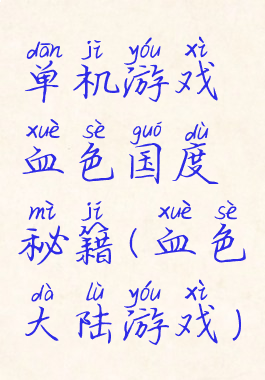 dān jī yóu xì
单机游戏
xuè sè guó dù
血色国度
mì jí xuè sè
秘籍(血色
dà lù yóu xì
大陆游戏)